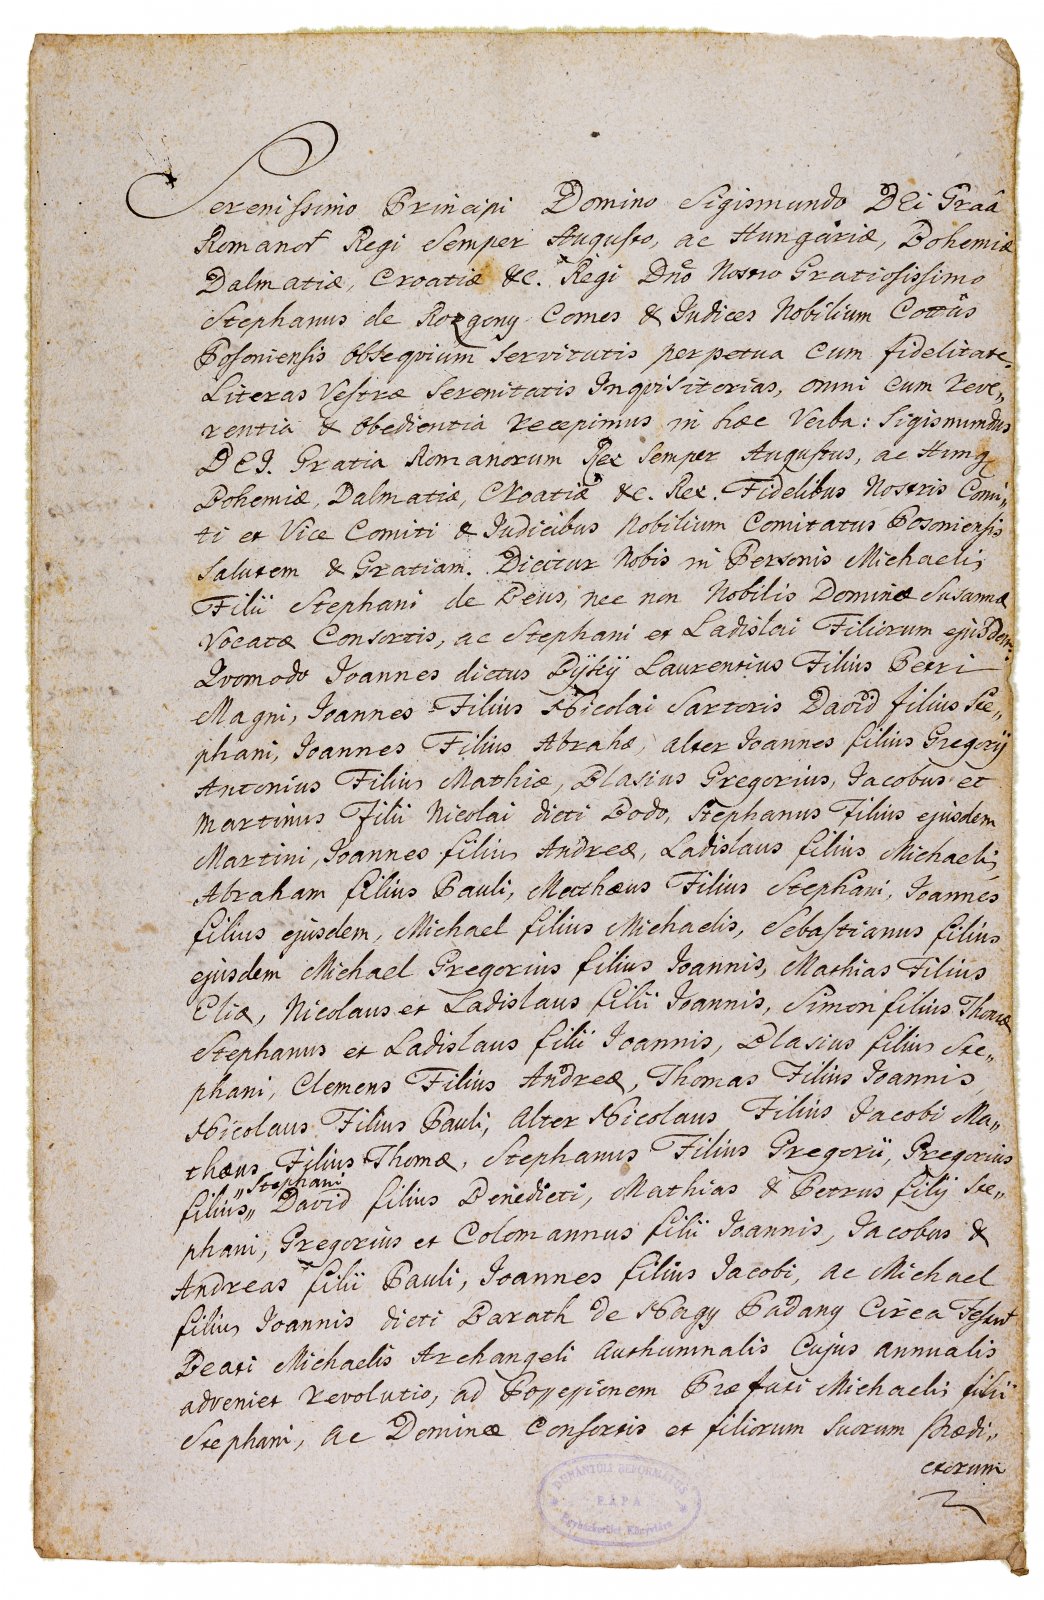 Serenissimo Principi Domino Sigismundo DEi Graâ
Romanor Regi Semper Augusto, ac Hungariæ, Bohemiæ
Dalmatiæ, Croatiæ &c. Regi Dno Nostro Gratiosissimo
Stephanus de Rozgony Comes & Judices Nobilium Cottâs
Posoniensis Obsequium Servitutis perpetua cum fidelitate.
Literas Vestræ Serenitatis Inquisitorias, omni cum reve„
rentia & Obedientia recepimus in hæc Verba: Sigismundus
DEI. Gratia Romanorum Rex Semper Augustus, ac Hung
Bohemiæ, Dalmatiæ, Croatiæ &c. Rex. Fidelibus Nostris Comi„
ti et Vice Comiti & Judicibus Nobilium Comitatus Posoniensis
Salutem & Gratiam. Dicitur Nobis in Personis Michaelis
Filii Stephani de Beus, nec non Nobilis Dominæ Susannæ
Vocatæ Consortis, ac Stephani et Ladislai Filiorum ejusdem.
Quomodo Joannes dictus Bÿkÿ Laurentius Filius Petri
Magni, Joannes Filius Nicolai Sartoris David filius Ste„
phani, Joannes Filius Abrahæ, alter Joannes filius Gregorÿ
Antonius Filius Mathiæ, Blasius Gregorius, Jacobus et
Martinus Filii Nicolai dicti Bodo, Stephanus Filius ejusdem
Martini, Joannes filius Andreæ, Ladislaus filius Michaelis,
Abraham filius Pauli, Mathæus Filius Stephani, Joannes
filius ejusdem, Michael filius Michaelis, Sebastianus filius
ejusdem Michael Gregorius filius Joannis, Mathias Filius
Eliæ, Nicolaus et Ladislaus filii Joannis, Simon filius Thomæ
Stephanus et Ladislaus filii Joannis, Blasius filius Ste„
phani, Clemens Filius Andreæ, Thomas Filius Joannis,
Nicolaus Filius Pauli, alter Nicolaus Filius Jacobi Ma„
thæus Filius Thomæ, Stephanus Filius Gregorii, Gregorius
„Stephani
filius„ David filius Benedicti, Mathias & Petrus filÿ Ste„
phani, Gregorius et Colomannus filii Joannis, Jacobus &
Andreas filii Pauli, Joannes filius Jacobi, ac Michael
filius Joannis dicti Barath de Nagy Padany Circa Festum
Beati Michaelis Archangeli Authumnalis Cujus annualis
adveniet revolutio, ad Possessionem Præfati Michaelis filii
Stephani, ac Dominæ Consortis et filiorum Suorum Prædi„
ctorum
DUNÁNTÚLI REFORMÁTUS
PÁPA
Egyházkerület Könyvtára